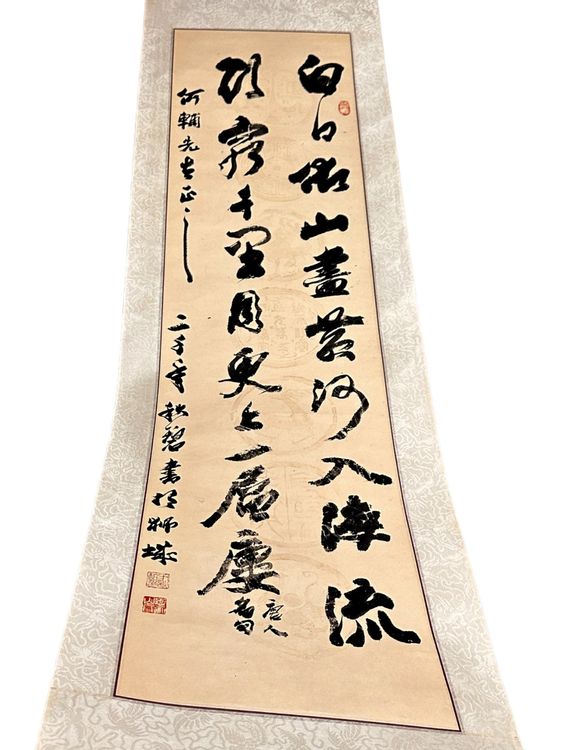 白日依山盡黃河入海流
欲窮千里目更上一層樓
唐人
何輔先生正之
二千年 書於獅城